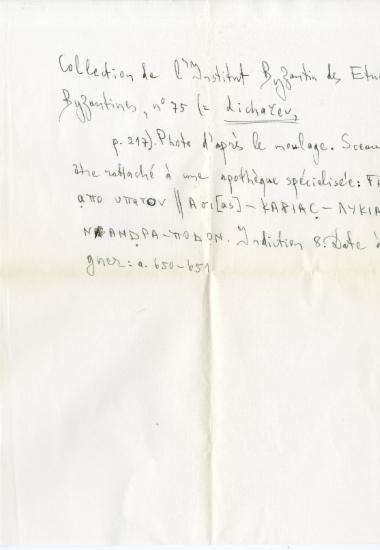 Collection de l'Institut Byzantin des Etu
Byzantines, n° 75 (= Lichačev,
p. 217). Photo d'après le moulage. Sceau
être rattaché à une apothèque spécialisée:
απο υπατον || Ασι[as] – ΚΑΡΙΑΣ – ΛΥΚΙΑ
ΝΑΝΔΡΑ–ΠΟΔΟΝ. Indiction 8. Date à
gner: a. 650–651